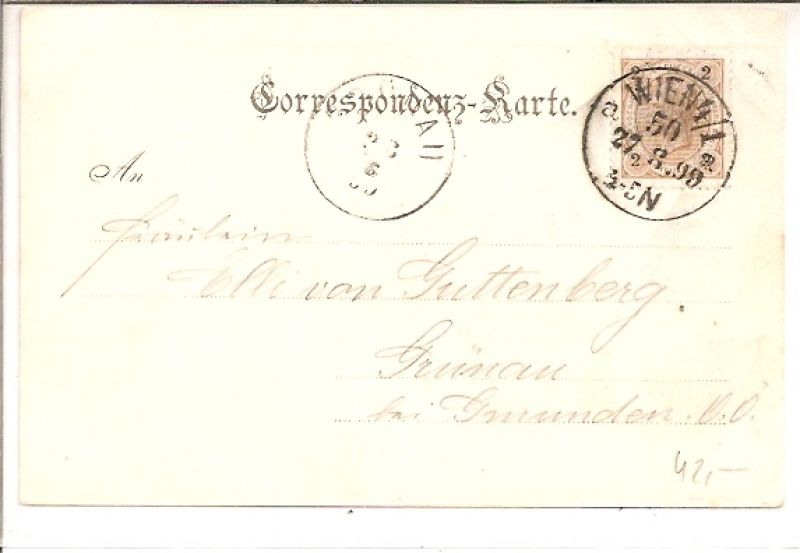 Correspondenz-Karte.
2 2
WIEN 4/1
a
50
27.8.99
2
4-5N
An
Fräulein
Elli von Guttenberg.
Grünau
bei Gmunden. O.Ö.
42,-